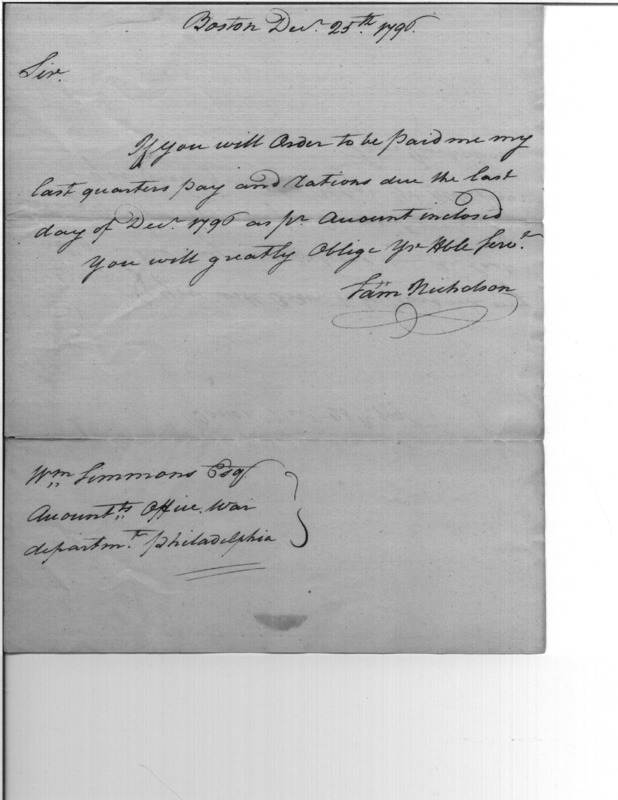 Boston Decr. 25th. 1796.
Sir.
If you will Order to be paid me my
last quarters pay and Rations due the last
day of Decr. 1796 as pr. Account inclosed
you will greatly Oblige Yr Hble Servt.
Sam Nicholson
Wm Simmons Esq
Accountts Office War
departmt. Philadelphia